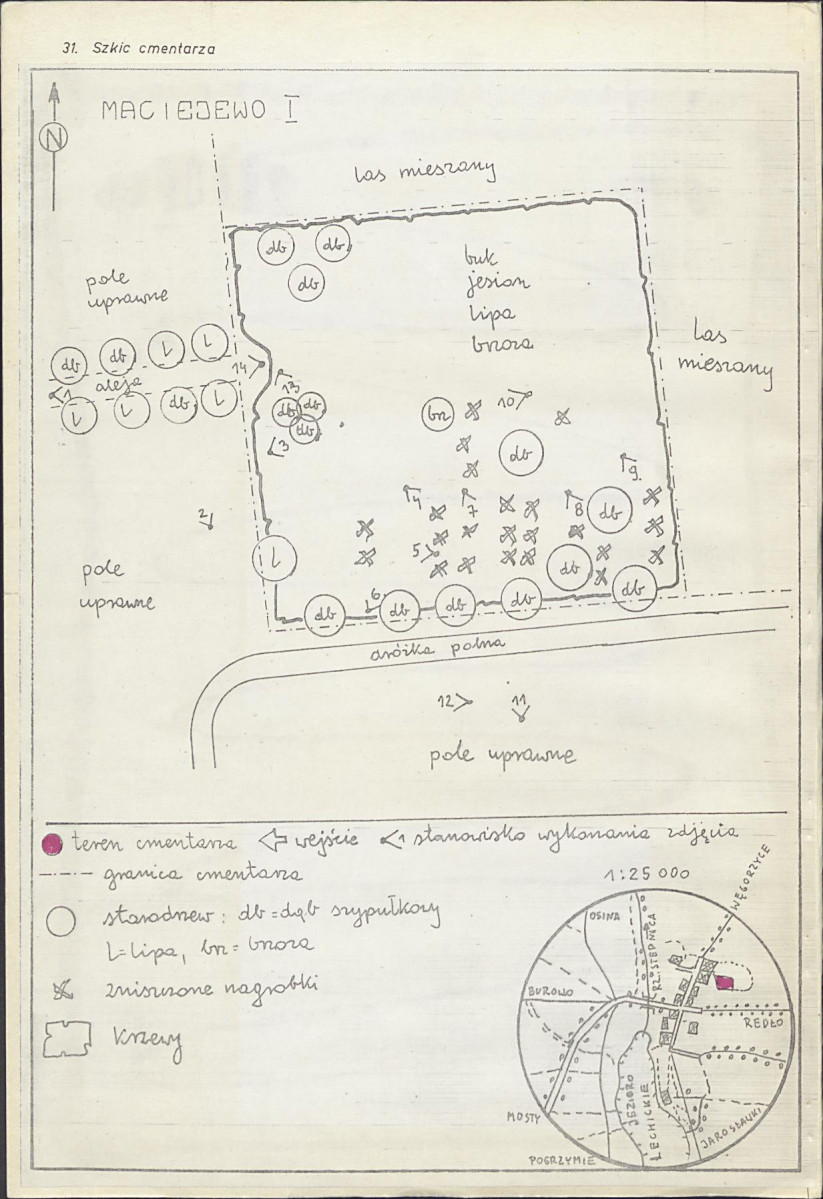 31. Szkic cmentarza
N
MACIEJEWO I
las mieszany
pole
uprawne
db db
db
buk
jesion
lipa
brzoza
las
mieszany
db db l l
aleja
1
l l db l
14
13
db db
db
3
br
10
db
9
2
4
7
8
db
5
l
db
6
db db db db db
pole
uprawne
dróżka polna
12 11
pole uprawne
teren cmentarza wejście 1 stanowisko wykonania zdjęcia
granica cmentarza
starodrzew: db = dąb szypułkowy
l = lipa, br = brzoza
zniszczone nagrobki
krzewy
1:25 000
WĘGORZYCE
OSINA
RZ. STEPNICA
BUROWO
REDŁO
JEZIORO
LECHICKIE
MOSTY
JAROSŁAWKI
POGRZYMIE